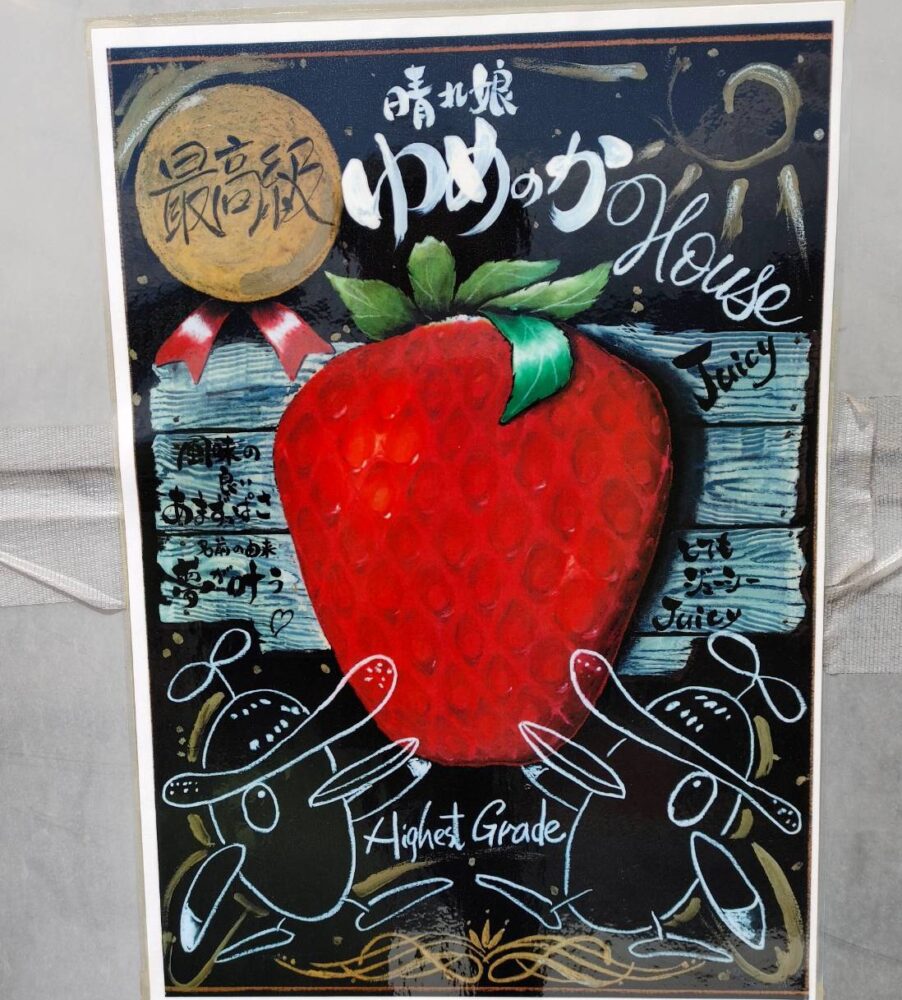 晴れ娘
最高級
ゆめのか
House
Juicy
風味の
良い
あまずっぱさ
名前の由来
夢が叶う
とても
ジューシー
Juicy
Highest Grade